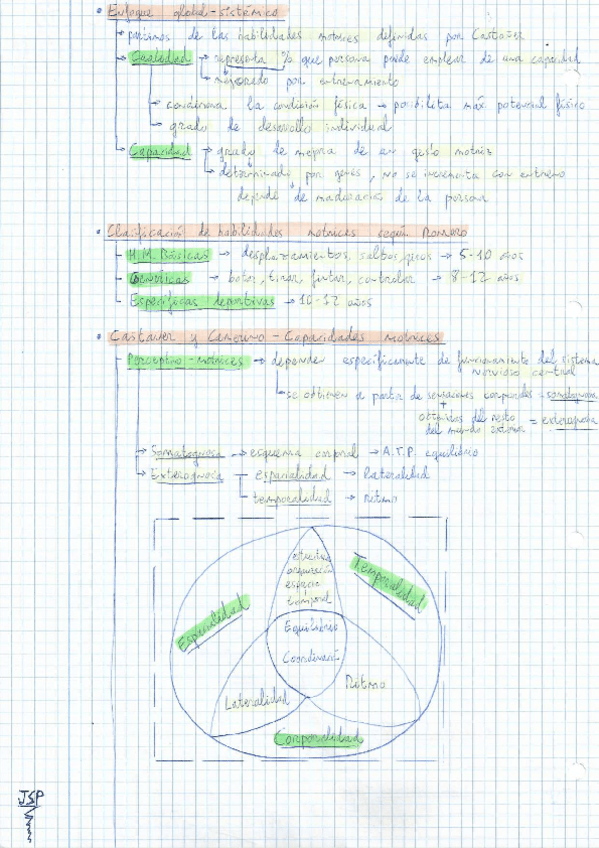 • Enfoque global-sistémico
→ de las habilidades motrices definidas por Castañer
→ Cualidad → representa % que persona puede emplear de una capacidad
→ mejorado por entrenamiento
→ condiciona la condición física → posibilita máx. potencial físico
→ grado de desarrollo individual
→ Capacidad → grado de mejora de en gesto motriz
→ determinado por genes, no se incrementa con entreno
depende de maduración de la persona
• Clasificación de habilidades motrices según Romero
H.M. Básicas → desplazamientos, saltos, giros → 5-10 años
Genéricas → botar, tirar, fintar, controlar → 8-12 años
Específicas deportivas → 10-12 años
• Castañer y Camerino - Capacidades motrices
Perceptivo-motrices → depender específicamente de funcionamiento del sistema
nervioso central
→ se obtienen a partir de sensaciones corporales = somatognosia
+
obtenidas del resto
del mundo externo = exterognosia
→ Somatognosia → esquema corporal → A.T.P. equilibrio
→ Exterognosia → espacialidad → lateralidad
temporalidad → ritmo
estructura
organización
espacio
temporal
Temporalidad
Espacialidad
Equilibrio
Coordinación
Ritmo
Lateralidad
Corporalidad
JSP